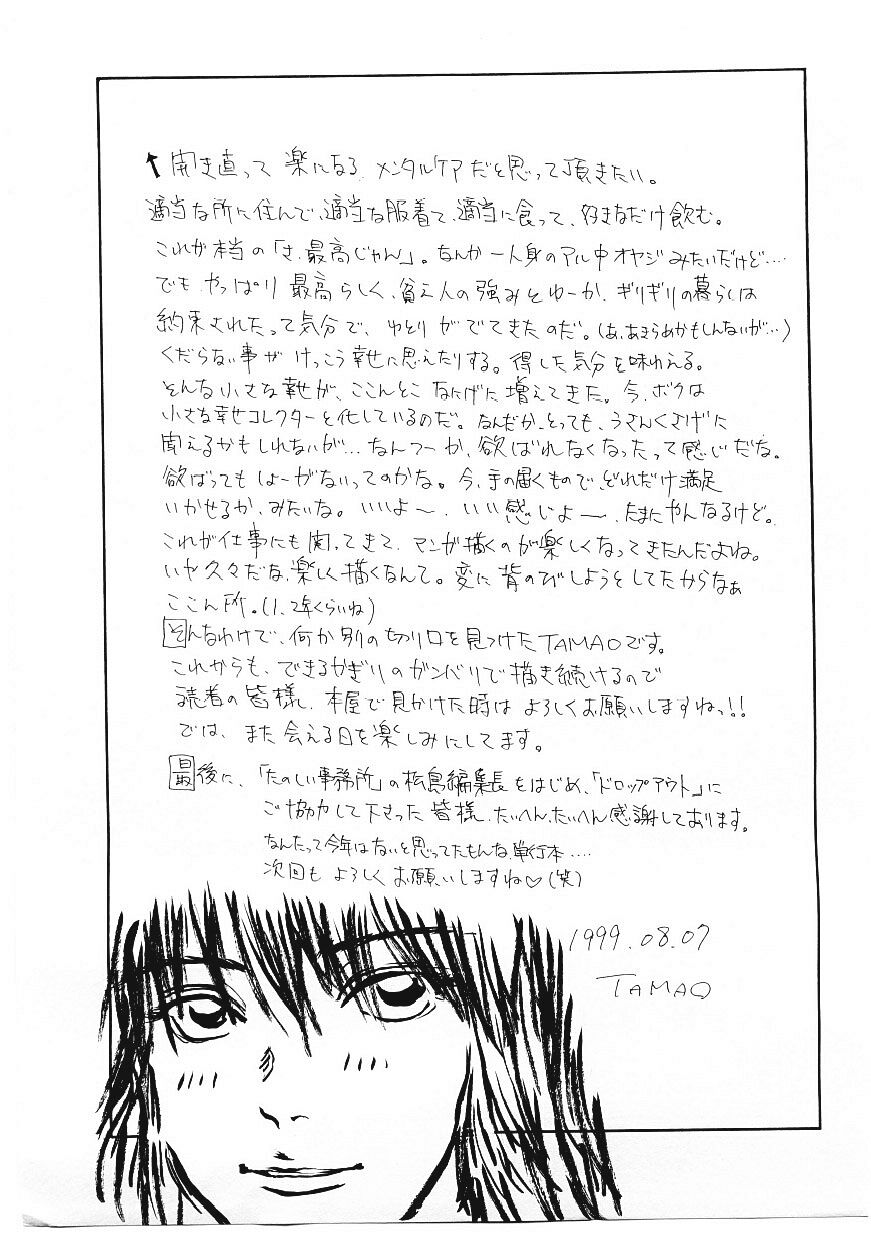 ↑ 開き直って 楽になる メンタルケアだと思って頂きたい。
適当な所に住んで、適当な服着て、適当に食って、好きなだけ飲む。
これが本当の「さ、最高じゃん」。なんか一人身のアル中オヤジみたいだけど‥‥
でも やっぱり 最高らしく、貧乏人の強みとゆーか、ギリギリの暮らしは
約束されたって気分で、ゆとりがでてきたのだ。(あ、あきらめかもしんないが…)
くだらない事が けっこう幸せに思えたりする。得した気分を味わえる。
そんな小さな幸せが、ここんとこ なにげに増えてきた。今、ボクは
小さな幸せコレクターと化しているのだ。なんだか、とっても、うさんくさげに
聞えるかもしれないが… なんつーか、欲ばれなくなったって感じだな。
欲ばってもしょーがないってのかな。今、手の届くもので、どれだけ満足
いかせるか、みたいな。いいよ〜、いい感じよ〜、たまにやんなるけど。
これが仕事にも関ってきて、マンガ描くのが楽しくなってきたんだよね。
いや久々だな、楽しく描くなんて。変に背のびしようとしてたからなぁ
ここん所。(1、2年くらいね)
そんなわけで、何か別の切り口を見つけたTAMAOです。
これからも、できるかぎりのガンバリで描き続けるので
読者の皆様、本屋で見かけた時は よろしくお願いしますねっ!!
では、また会える日を楽しみにしてます。
最後に、「たのしい事務所」の松島編集長をはじめ、「ドロップアウト」に
ご協力して下さった皆様、たいへん、たいへん感謝しております。
なんたって今年はないと思ってたもんな単行本‥‥
次回も よろしくお願いしますね♡(笑)
1999.08.07
TAMAO